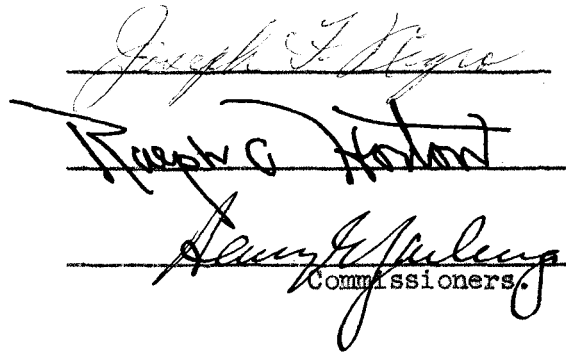 Joseph F. Negro
Ralph C Horton
Henry G
Commissioners.